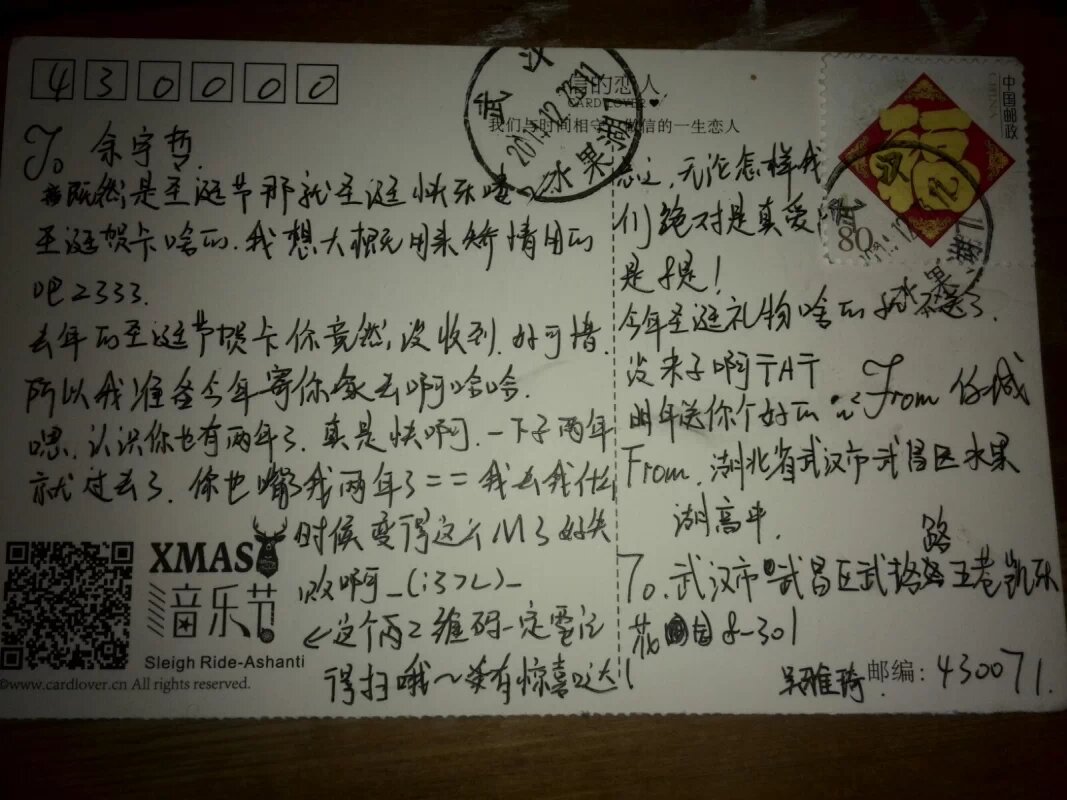 430000
信的恋人
CARDLOVER
我们与时间相守 做信的一生恋人
中国邮政
CHINA
福
80
武汉
2011.12.23.11
水果湖
To 余宇哲.
既然是圣诞节那就圣诞快乐喽~
圣诞贺卡啥的.我想大概是用来矫情用的
吧2333.
去年的圣诞节贺卡你竟然没收到.好可惜.
所以我准备今年寄你家去啊哈哈.
嗯.认识你也有两年了.真是快啊.一下子两年
就过去了.你也嘴了我两年了==我去我什么
时候变得这么M了好失
败啊_(:3ZL)_
←这个的二维码一定要记
得扫哦~会有惊喜哒!
总之,无论怎样我
们绝对是真爱
是不是!
今年圣诞礼物啥的就不送了.
没来子啊TAT
明年送你个好的 From
From.湖北省武汉市武昌区水果
湖高中.
To.武汉市武昌区武珞路王巷凯乐
花园8-301
吴雅琦 邮编: 430071.
XMAS
音乐节
Sleigh Ride-Ashanti
©www.cardlover.cn All rights reserved.